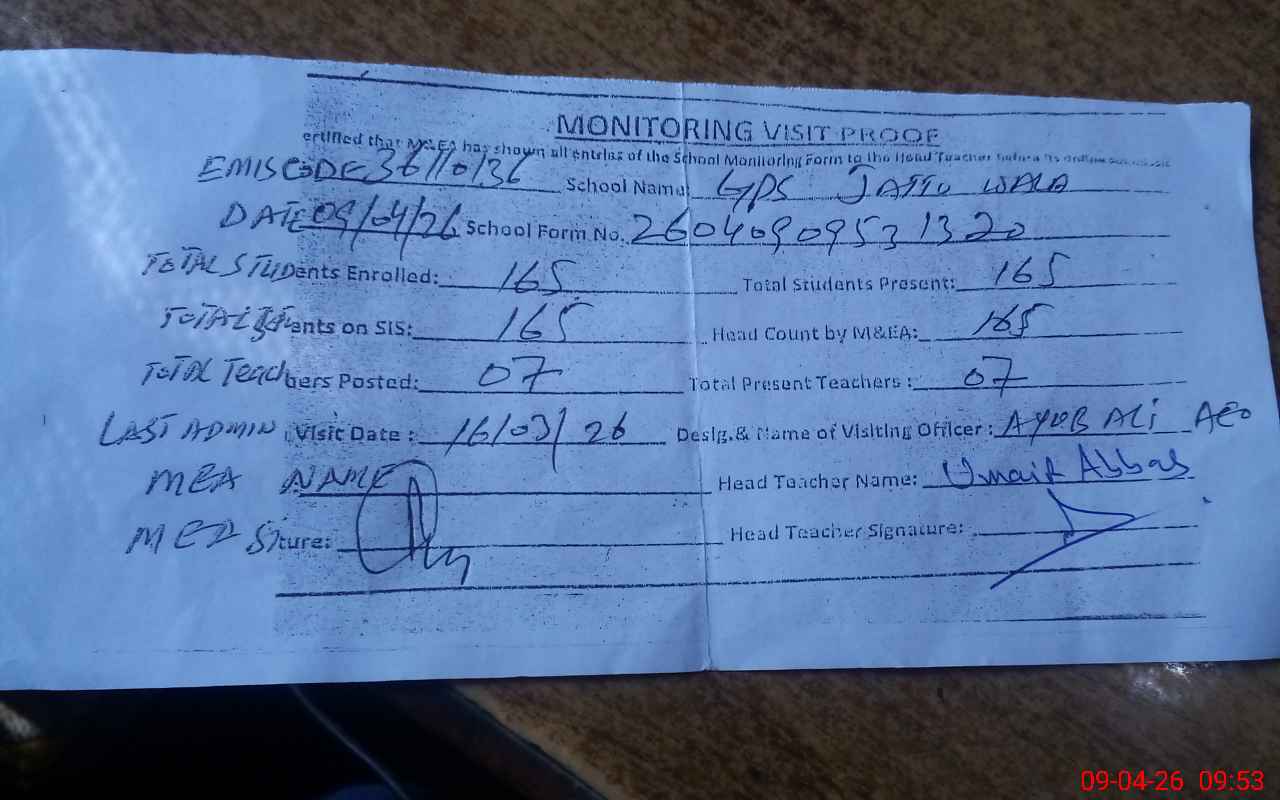 MONITORING VISIT PROOF
ertified that M&EA has shown all entries of the School Monitoring Form to the Head Teacher before its
EMIS CODE 36110136 School Name: GPS JATTU WALA
DATE 09/04/26 School Form No. 26040909531320
TOTAL STUDents Enrolled: 165 Total Students Present: 165
TOTAL ents on SIS: 165 Head Count by M&EA: 165
TOTAL Teachers Posted: 07 Total Present Teachers : 07
LAST ADMIN Visit Date : 16/03/26 Desig.& Name of Visiting Officer : AYUB ALI AEO
MEA NAME Head Teacher Name: Umair Abbas
MEA Siture: Head Teacher Signature:
09-04-26 09:53